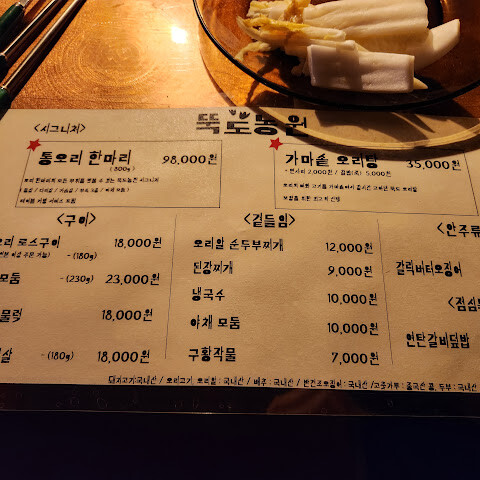 <시그니처>
뚝도농원
통오리 한마리 98,000원
(800g)
가마솥 오리탕 35,000원
- 면사리 2,000원 / 길밥(죽) 5,000원
<구이>
오리 로스구이 18,000원
-(180g)
모둠 -(230g) 23,000원
물럭 18,000원
살 -(180g) 18,000원
<곁들임>
오리알 순두부찌개 12,000원
된장찌개 9,000원
냉국수 10,000원
야채 모둠 10,000원
구황작물 7,000원
<안주류
갈릭버터오징어
<점심
언탄갈비덮밥
돼지고기:국내산 / 오리고기, 오리알 : 국내산 / 배추 : 국내산 / 반건조오징어 : 국내산 /고춧가루 : 중국산 쌀, 두부 : 국내산